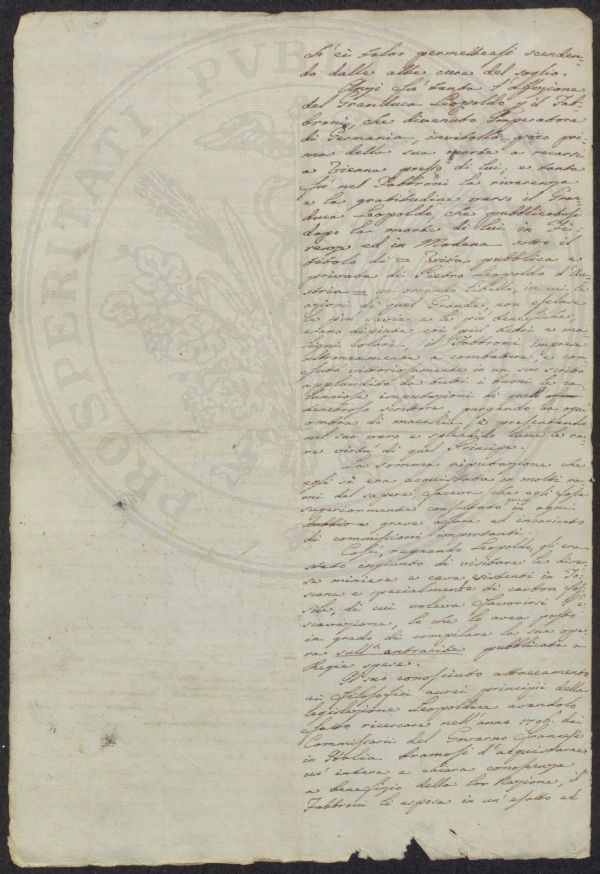 PROSPERITATI PUBL
ch'ei talor permetteasi scenden-
do dalle alte cure del soglio.
Anzi fu tanta l'affezione
del Granduca Leopoldo p. il Fab-
broni, che divenuto Imperatore
di Germania, invitollo poco pri-
ma della sua morte a recarsi
a Vienna presso di lui; e tanta
fu nel Fabbroni la riverenza
e la gratitudine verso il Gran-
duca Leopoldo, che pubblicatasi
dopo la morte di lui in Fi-
renze ed in Modena sotto il
titolo di = Vita pubblica e
privata di Pietro Leopoldo d'Au-
stria = un orrendo libello, in cui le
azioni di quel Grande, non escluse
le più savie e le più benefiche,
erano dipinte coi più tetri e ma-
ligni colori, il Fabbroni imprese
ultroneamente a combattere, e con-
futò vittoriosamente in un suo scritto
applaudito da tutti i buoni le ca-
lunniose imputazioni di quell'
scrittore, purgando da ogni
ombra di macchia, e presentando
nel suo vero e splendido lume le ra-
re virtù di quel Principe.
La somma riputazione che
egli si era acquistata in molti ra-
mi del sapere, faceva che egli fosse
superiormente consultato in quasi ogni
grave affare ed incaricato
di commissioni importanti.
Così, regnando Leopoldo, gli era
stato ingiunto di visitare le diver-
se miniere e cave esistenti in To-
scana e specialmente di carbon fos-
sile, di cui voleva favorirsi l'e-
scavazione, lo che lo avea posto
in grado di compilare la sua ope-
ra sull'antracite pubblicata a
Regie spese.
Il suo conosciuto attaccamento
ai filosofici aurei principii della
legislazione Leopoldina avendolo
fatto ricercare nell'anno 1796. dai
Commissarii del Governo Francese
in Italia bramosi d'acquistarne
un'intera e chiara conoscenza
a benefizio della lor Nazione, il
Fabbroni la espose in un'esatto ed